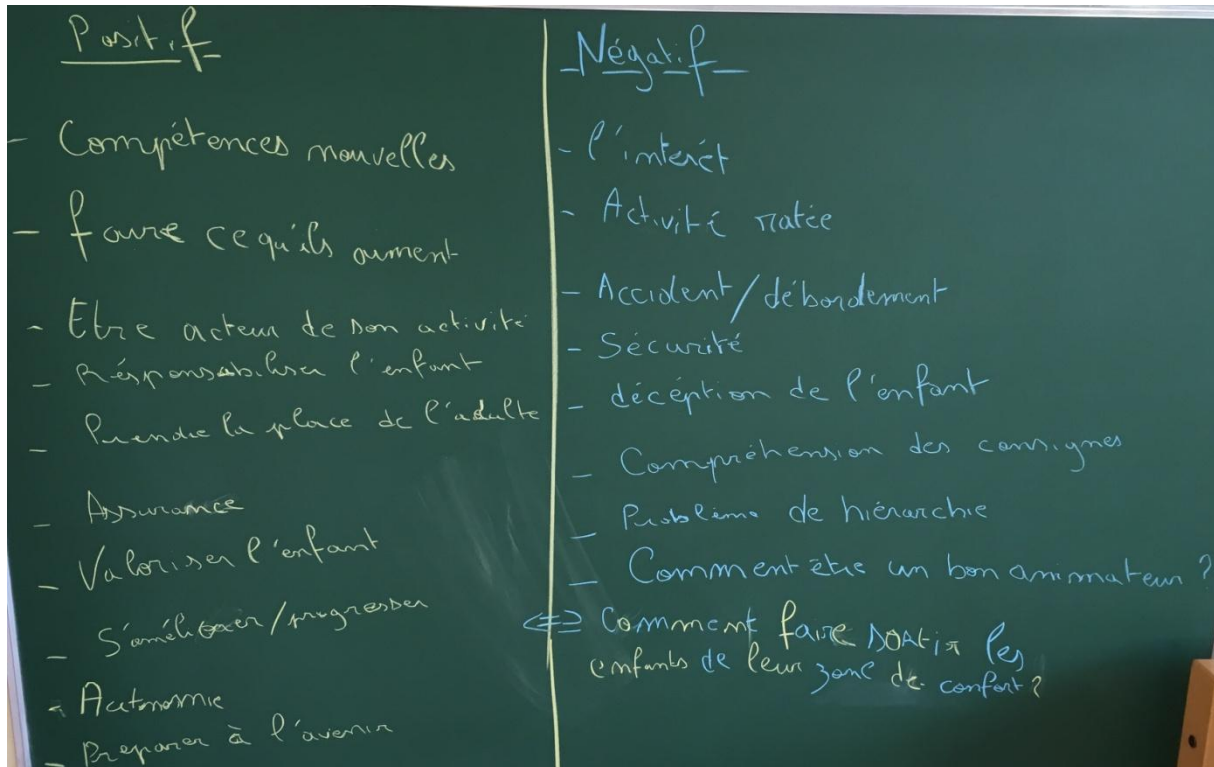 Positif
- Compétences nouvelles
- faire ce qu'ils aiment
- Etre acteur de son activité
- Résponsabiliser l'enfant
- Prendre la place de l'adulte
- Assurance
- Valoriser l'enfant
- S'améliorer/progresser
- Autonomie
- Preparer à l'avenir
Négatif
- l'interét
- Activité ratée
- Accident/débordement
- Sécurité
- décéption de l'enfant
- Compréhension des consignes
- Problème de hiérarchie
- Comment être un bon animateur ?
<=> Comment faire sortir les
enfants de leur zone de confort ?